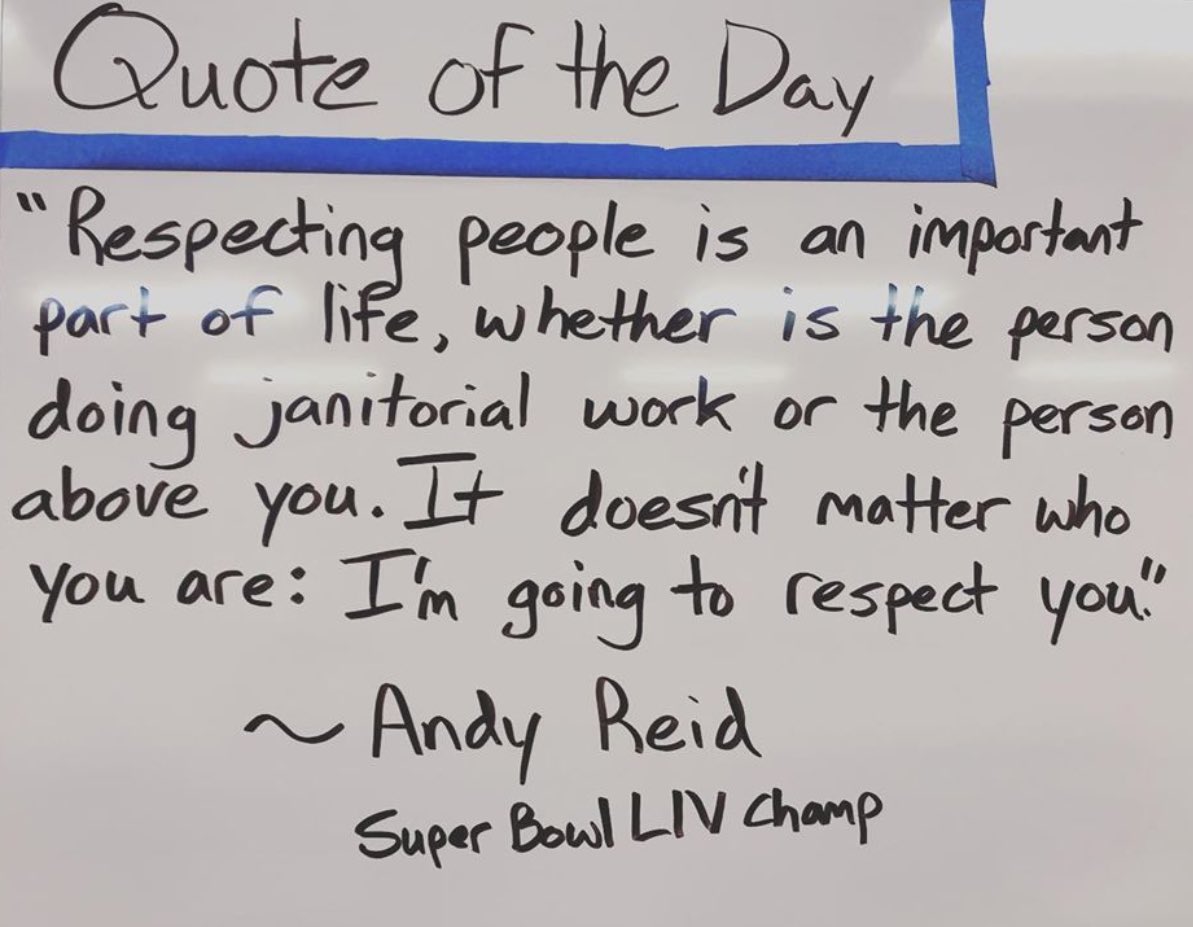 Quote of the Day
"Respecting people is an important
part of life, whether is the person
doing janitorial work or the person
above you. It doesn't matter who
you are: I'm going to respect you."
~ Andy Reid
Super Bowl LIV Champ